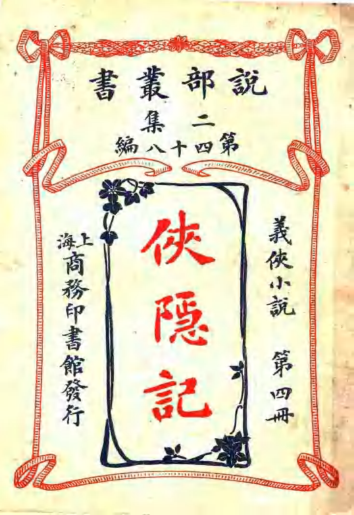 說部叢書
二集
第四十八編
義俠小說　第四冊
俠隱記
上海商務印書館發行